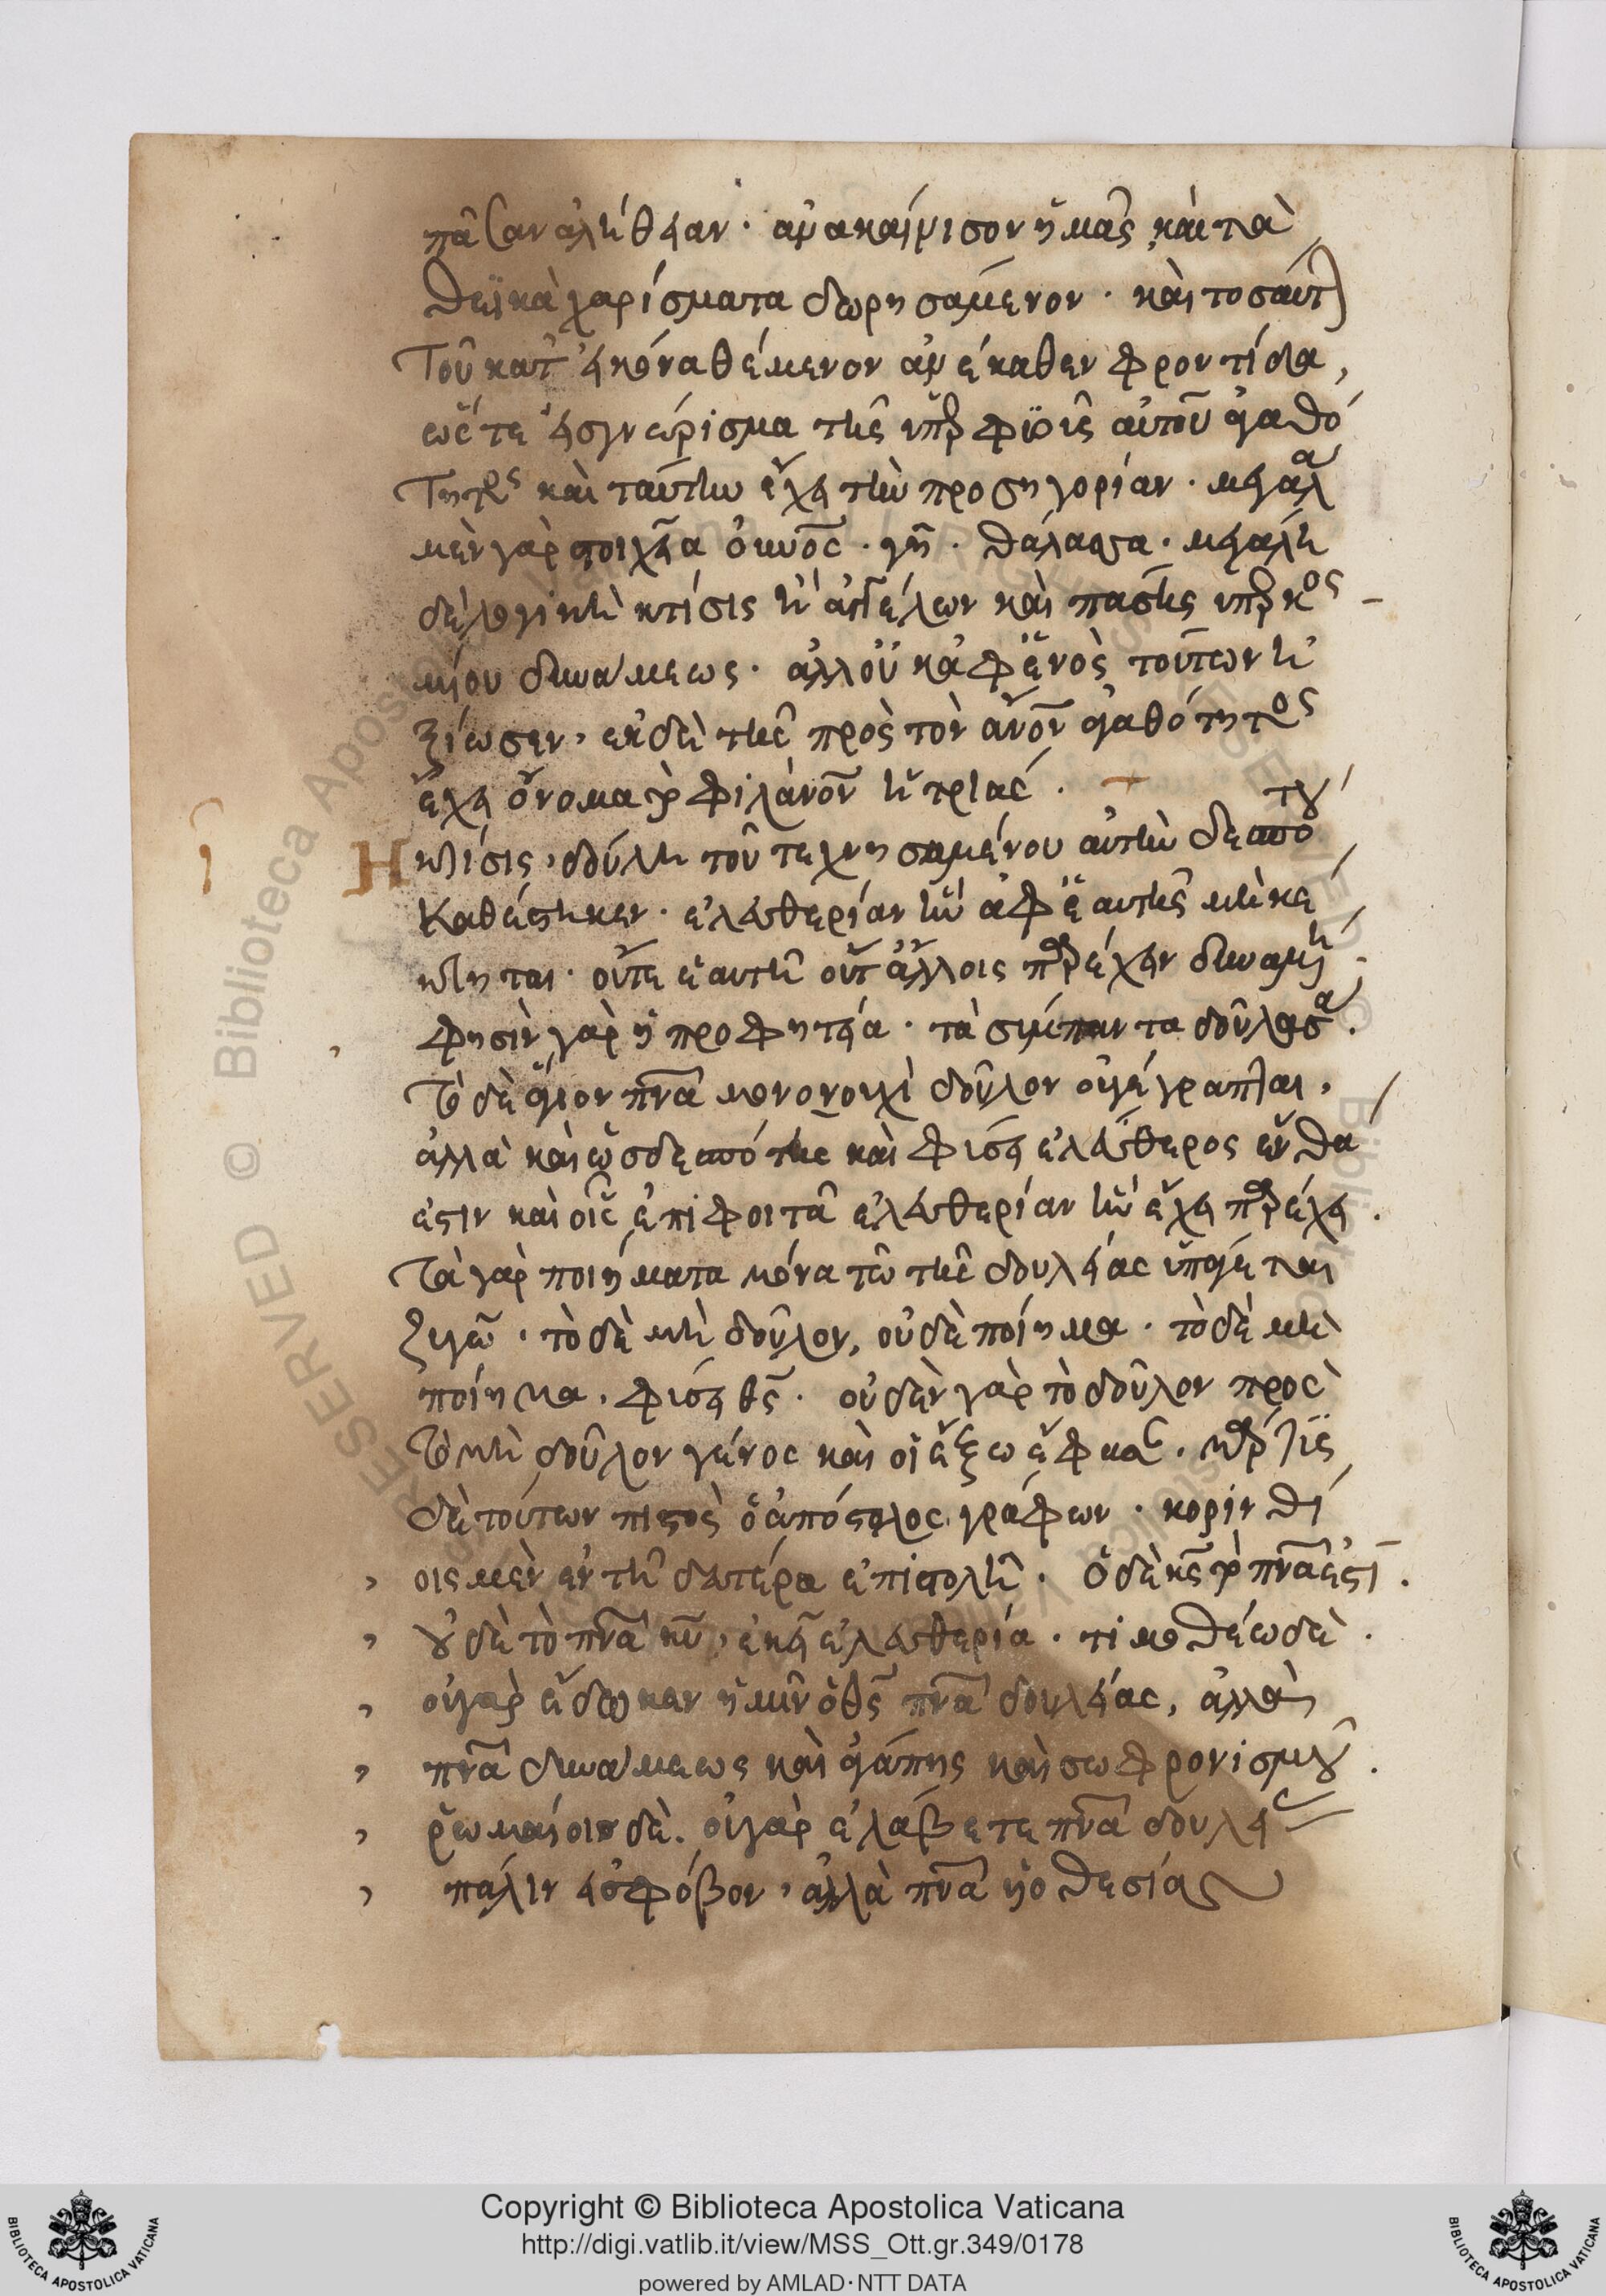 πᾶσαν ἀλήθειαν· ἀνακαίνισον ἡμᾶς καὶ τὰ
θεϊκὰ χαρίσματα δωρησάμενον· καὶ τοσαύτ
τοῦ κατ' εἰκόνα θέμενον ἀνέκαθεν φροντίδα,
ὥστε εἰς γνώρισμα τῆς ὑπερφυοῦς αὐτοῦ ἀγαθό
τητος καὶ ταύτην ἔχει τὴν προσηγορίαν· μεγάλα
μὲν γὰρ στοιχεῖα ὁ οὐνὸς· γῆ· θάλασσα· μεγάλη
δὲ λογικὴ κτίσις ἡ ἀγγέλων καὶ πάσης ὑπερκοσ
μίου δυνάμεως· ἀλλ' οὐκ ἀφ' ἑνὸς τούτων ἠ
ξίωσεν, ἐκ δὲ τῆς πρὸς τὸν ἄνον ἀγαθότητος
ἔχει ὄνομα τὸ φιλάνον ἡ τριάς.
Η κτίσις, δούλη τοῦ τεχνησαμένου αὐτὴν δεσπότου
καθέστηκεν· ἐλευθερίαν ἣν ἀφ' ἑαυτῆς μὴ κέ
κτηται· οὔτε ἑαυτῇ οὔτ' ἄλλοις παρέχειν δυναμένη·
φησὶν γὰρ ἡ προφητεία· τὰ σύμπαντα δοῦλα σά.
τὸ δὲ ἅγιον πνα μονονουχὶ δοῦλον οὐ γέγραπται,
ἀλλὰ καὶ ὡς δεσπότης καὶ φύσει ἐλεύθερος ἔνθα
ἐστιν καὶ οἷς ἐπιφοιτᾶ ἐλευθερίαν ἣν ἔχει παρέχει.
τὰ γὰρ ποιήματα μόνα τῶ τῆς δουλείας ὑπάγεται
ζυγῶ· τὸ δὲ μὴ δοῦλον, οὐδὲ ποίημα· τὸ δὲ μὴ
ποίημα, φύσει θς· οὐδὲν γὰρ τὸ δοῦλον πρὸς
τὸ μὴ δοῦλον γένος καὶ οἱ ἔξω ἔφασ.
δὲ τούτων πιστὸς ὁ ἀπόστολος γράφων· κορινθί
οις μὲν ἐν τῇ δευτέρα ἐπιστολῇ· ὁ δὲ κς τὸ πνα ἐστι.
οὗ δὲ τὸ πνα κυ, ἐκεῖ ἐλευθερία· τιμοθέω δὲ·
οὐ γὰρ ἔδωκεν ἡμῖν ὁ θς πνα δουλείας, ἀλλὰ
πνα δυνάμεως καὶ ἀγάπης καὶ σωφρονισμοῦ.
ῥωμαίοις δὲ. οὐ γὰρ ἐλάβετε πνα δουλείας
πάλιν εἰς φόβον, ἀλλὰ πνα υἱοθεσίας
Copyright © Biblioteca Apostolica Vaticana
http://digi.vatlib.it/view/MSS_Ott.gr.349/0178
powered by AMLAD·NTT DATA